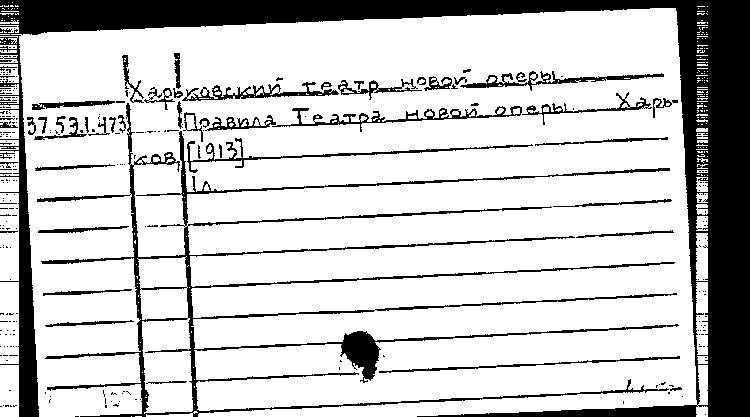 Харьковский театр новой оперы.
37.53.1.473 Правила Театра новой оперы. Харь-
ков, [1913].
1 л.